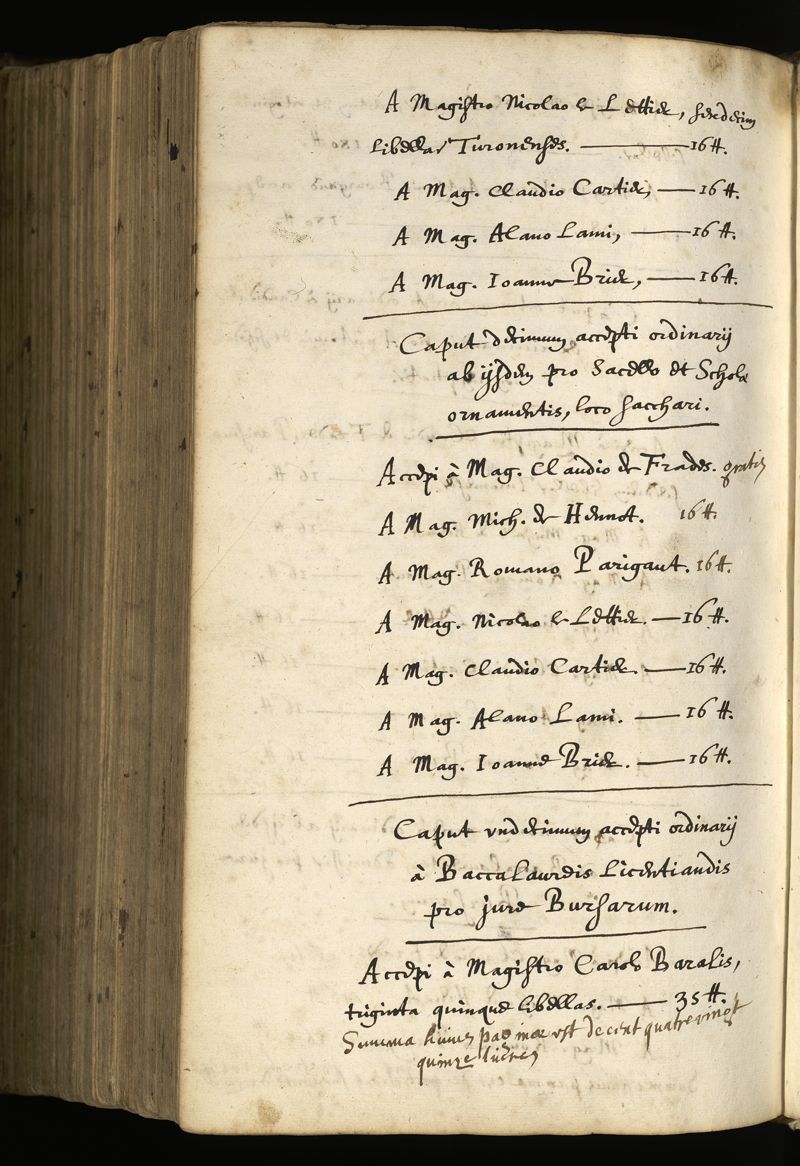 A Magistro Nicolao le Lettier, sexdecim
libellas Turonenses. — 16 ₶.
A Mag. Claudio Cartier, — 16 ₶.
A Mag. Alano Lami, — 16 ₶.
A Mag. Ioanne Brier, — 16 ₶.
Caput decimum accepti ordinarij
ab ijsdem pro Sacello et Scholæ
ornamentis, loco sacchari.
Accepi à Mag. Claudio de Frades. gratis
A Mag. Mich. de Hennot. 16 ₶.
A Mag. Romano Parigaut. 16 ₶.
A Mag. Nicolao le Lettier. — 16 ₶.
A Mag. Claudio Cartier. — 16 ₶.
A Mag. Alano Lami. — 16 ₶.
A Mag. Ioanne Brier. — 16 ₶.
Caput undecimum accepti ordinarij
à Baccalaureis Licentiandis
pro jure Bursarum.
Accepi à Magistro Carolo Baralis,
triginta quinque libellas. — 35 ₶.
Summa huius paginae est de cent quatre vingt
quinze livres